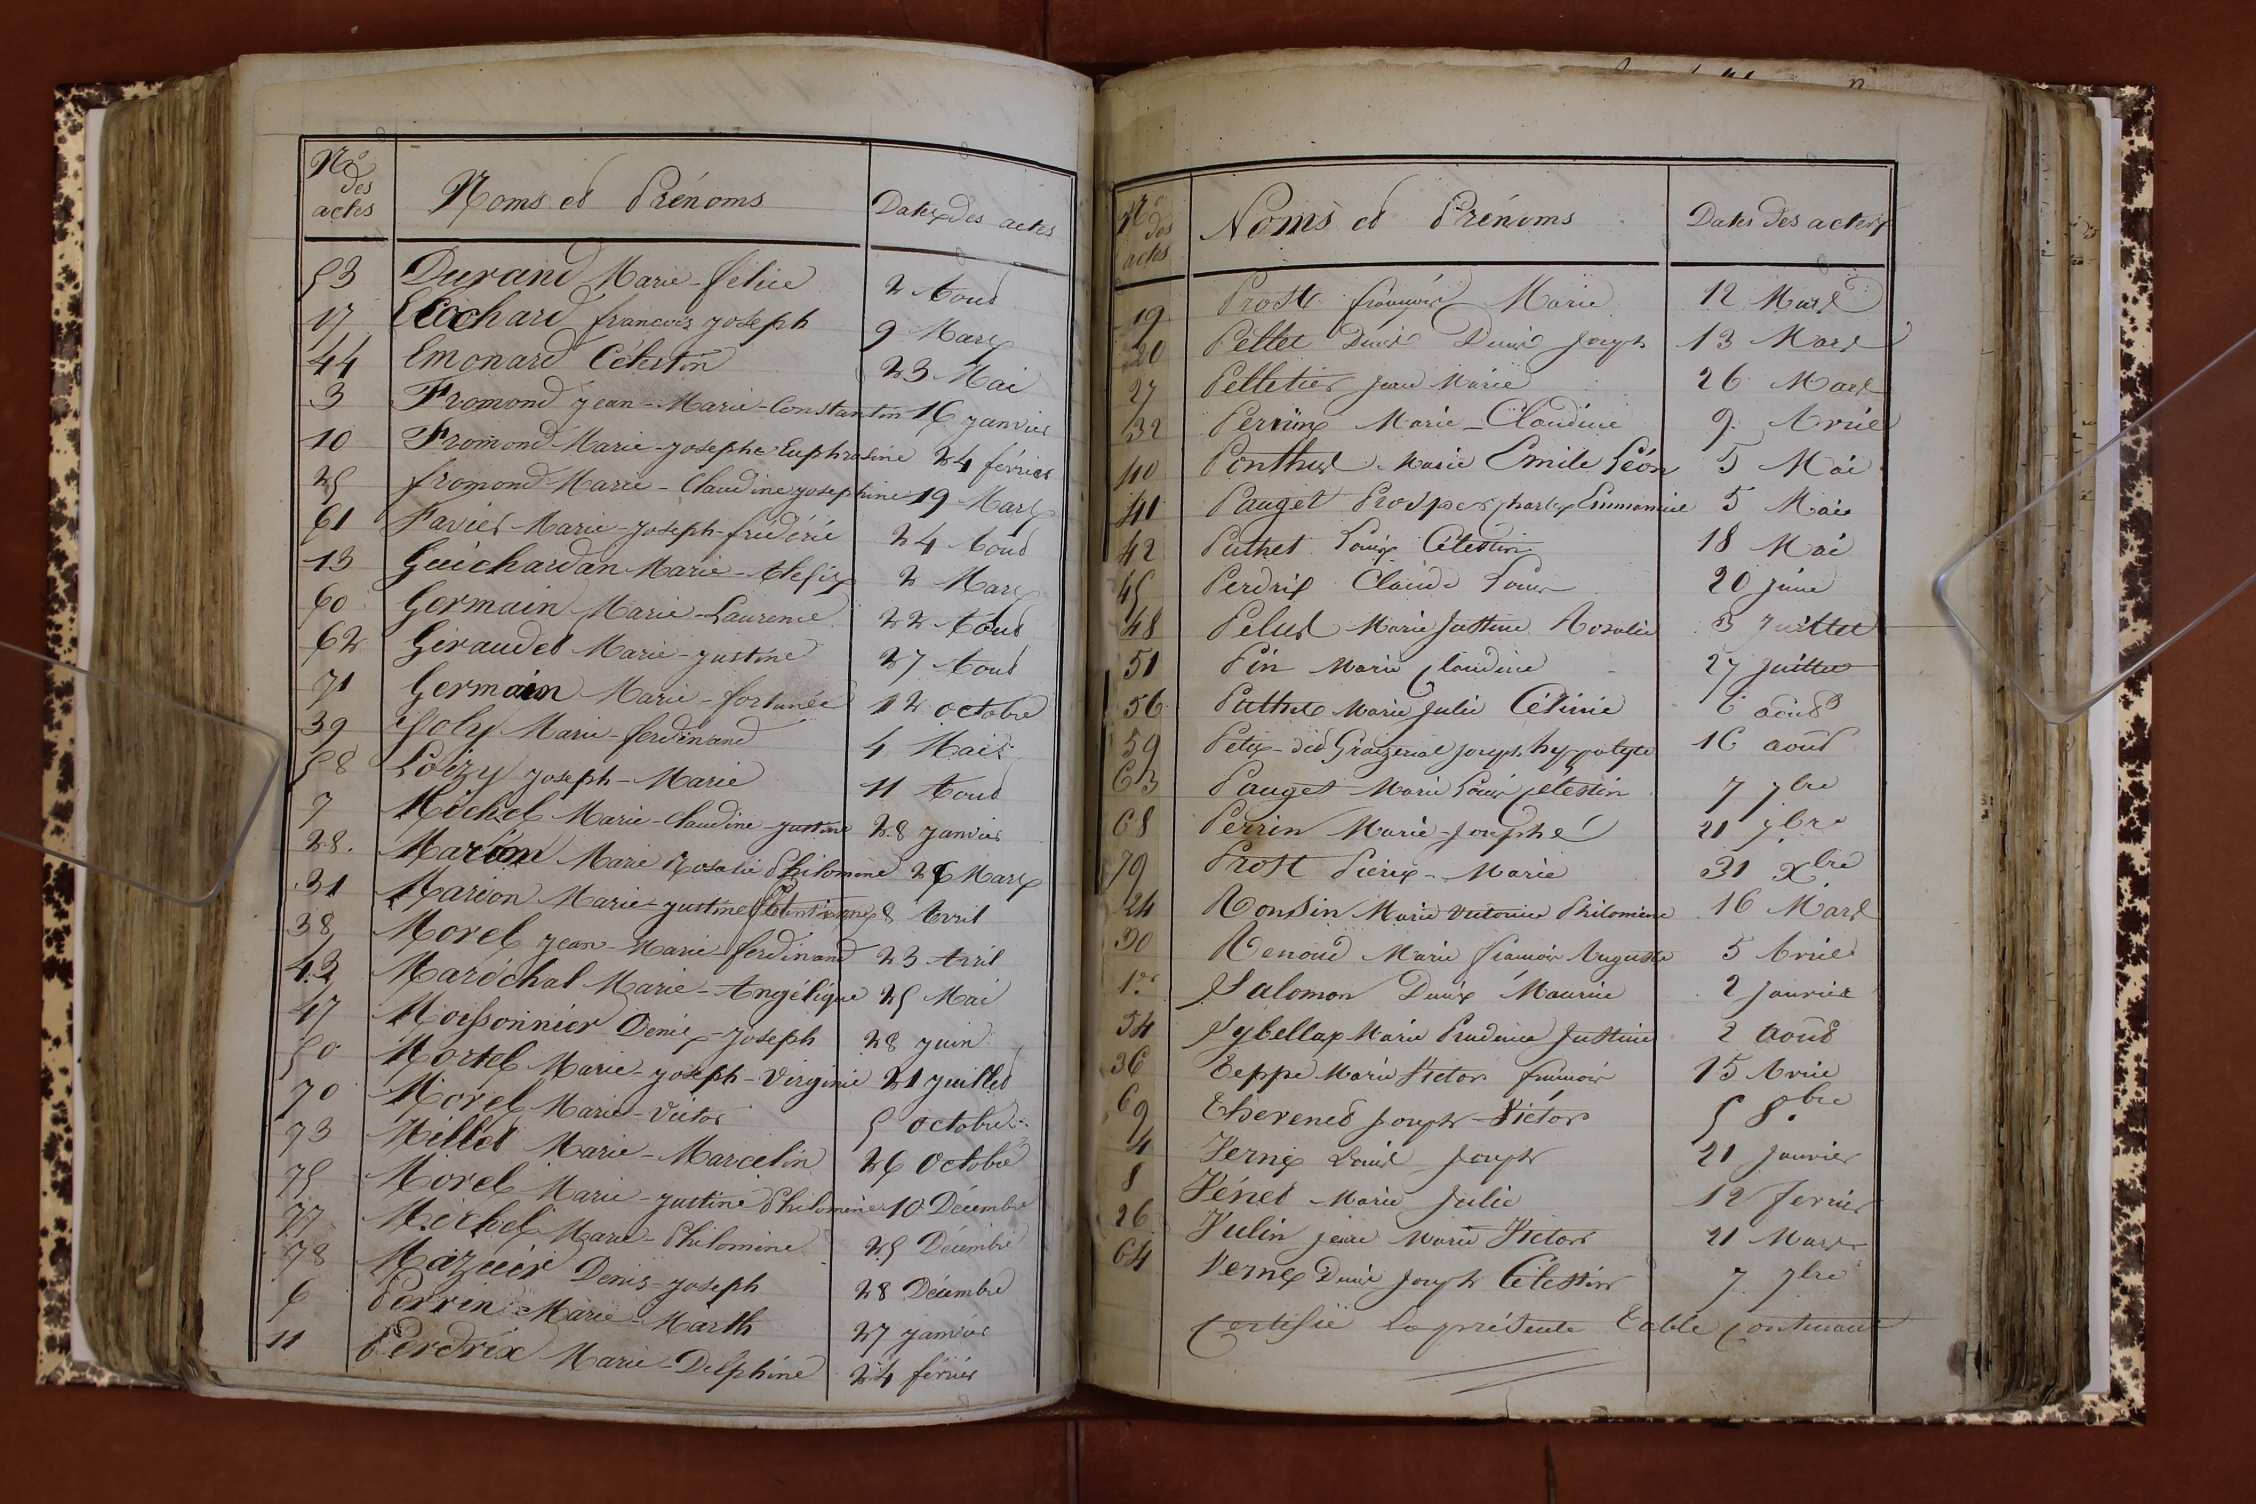 Nos des actes Noms et Prénoms Dates des actes
53 Durand Marie-félicie 2 Aout
17 Ecochard françois joseph 9 Mars
44 Emonard Célestin 23 Mai
3 Fromond jean-Marie-Constantin 16 janvier
10 Fromond Marie-josephe Euphrasine 24 février
25 fromond Marie-Claudine josephine 19 Mars
61 Favier Marie-joseph-frédéric 24 Aout
13 Guichardan Marie-Alefix 2 Mars
60 Germain Marie-Laurence 22 Aout
62 Giraudet Marie-justine 27 Aout
71 Germain Marie-fortunée 12 octobre
39 Joly Marie-ferdinand 4 Mai
58 Loizy joseph-Marie 11 Aout
7 Michel Marie-Claudine-justine 28 janvier
28. Marion Marie Rosalie Philomène 26 Mars
31 Marion Marie-justine 8 Avril
38 Morel jean-Marie ferdinand 23 Avril
43 Maréchal Marie-Angélique 25 Mai
47 Moissonnier Denis-joseph 28 juin
50 Mortel Marie-joseph-Virginie 21 juillet
70 Morel Marie-Victor 5 octobre
73 Millet Marie-Marcelin 26 Octobre
75 Morel Marie-justine Philomène 10 Décembre
77 Michel Marie-Philomène 25 Décembre
78 Mazuir Denis-joseph 28 Décembre
6 Perrin Marie-Marth 27 janvier
11 Perdrix Marie-Delphine 24 février
Nos des actes Noms et Prénoms Dates des actes
19 Prost françois Marie 12 Mars
20 Pellet Denis Joseph 13 Mars
27 Pelletier Jean Marie 26 Mars
32 Perrin Marie-Claudine 9 Avril
40 Ponthus Marie Emile Léon 5 Mai
41 Pauget Prosper Charles Emmanuel 5 Mai
42 Puthet Louis Célestin 18 Mai
45 Perdrix Claude Louis 20 juin
48 Pelus Marie Justine Rosalie 3 Juillet
51 Pin Marie Claudine 27 Juillet
56 Puthet Marie Julie Célinie 6 août
59 Petit-dit Graizerial Joseph hyppolyte 16 août
63 Pauget Marie Louis Célestin 7 7bre
68 Perrin Marie-Josephé 21 7bre
79 Prost Pierre-Marie 31 Xbre
24 Roussin Marie Victorine Philomène 16 Mars
30 Renoud Marie françois Auguste 5 Avril
1er Salomon Denis Maurice 2 janvier
54 Sybellas Marie Prudence Justine 2 Août
36 Teppe Marie Victor françois 15 Avril
69 Thevenet Joseph-Victor 5 8.bre
4 Verne Louis Joseph 21 Janvier
8 Vénet Marie Julie 12 fevrier
26 Vulin jean Marie Victor 21 Mars
64 Verne Denis Joseph Célestin 7 7bre
Certifié la présente Table contenant